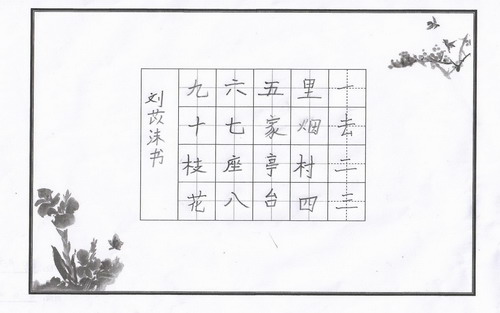 一去二三
里烟村四
五家亭台
六七座八
九十枝花
刘苡沫书